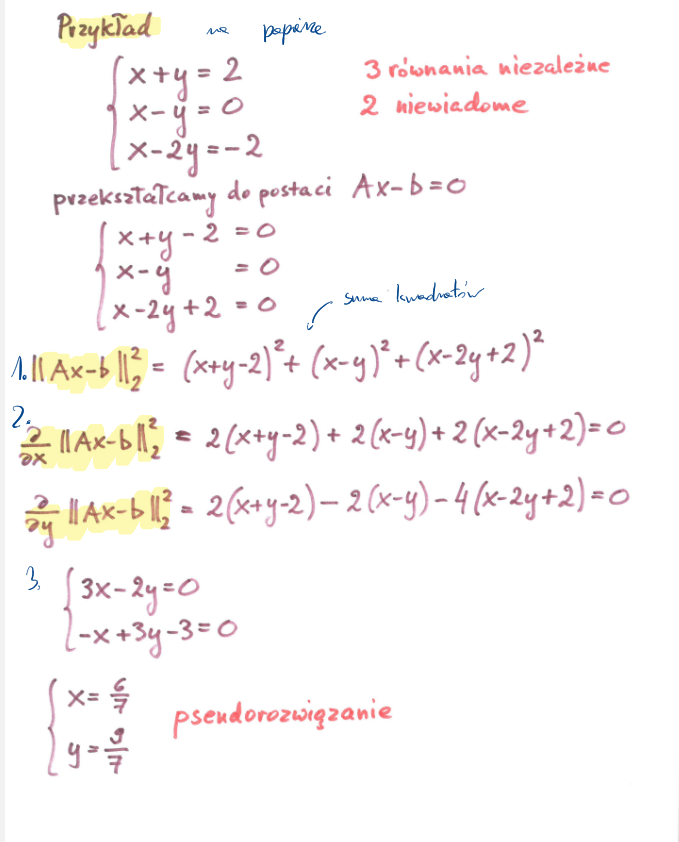 Przykład na papierze
x+y = 2
x-y = 0
x-2y = -2
3 równania niezależne
2 niewiadome
przekształcamy do postaci Ax-b=0
x+y-2 = 0
x-y = 0
x-2y+2 = 0
suma kwadratów
1. ||Ax-b||₂² = (x+y-2)² + (x-y)² + (x-2y+2)²
2.
∂/∂x ||Ax-b||₂² = 2(x+y-2) + 2(x-y) + 2(x-2y+2) = 0
∂/∂y ||Ax-b||₂² = 2(x+y-2) - 2(x-y) - 4(x-2y+2) = 0
3. 3x-2y=0
-x+3y-3=0
x = 6/7
y = 9/7
pseudorozwiązanie